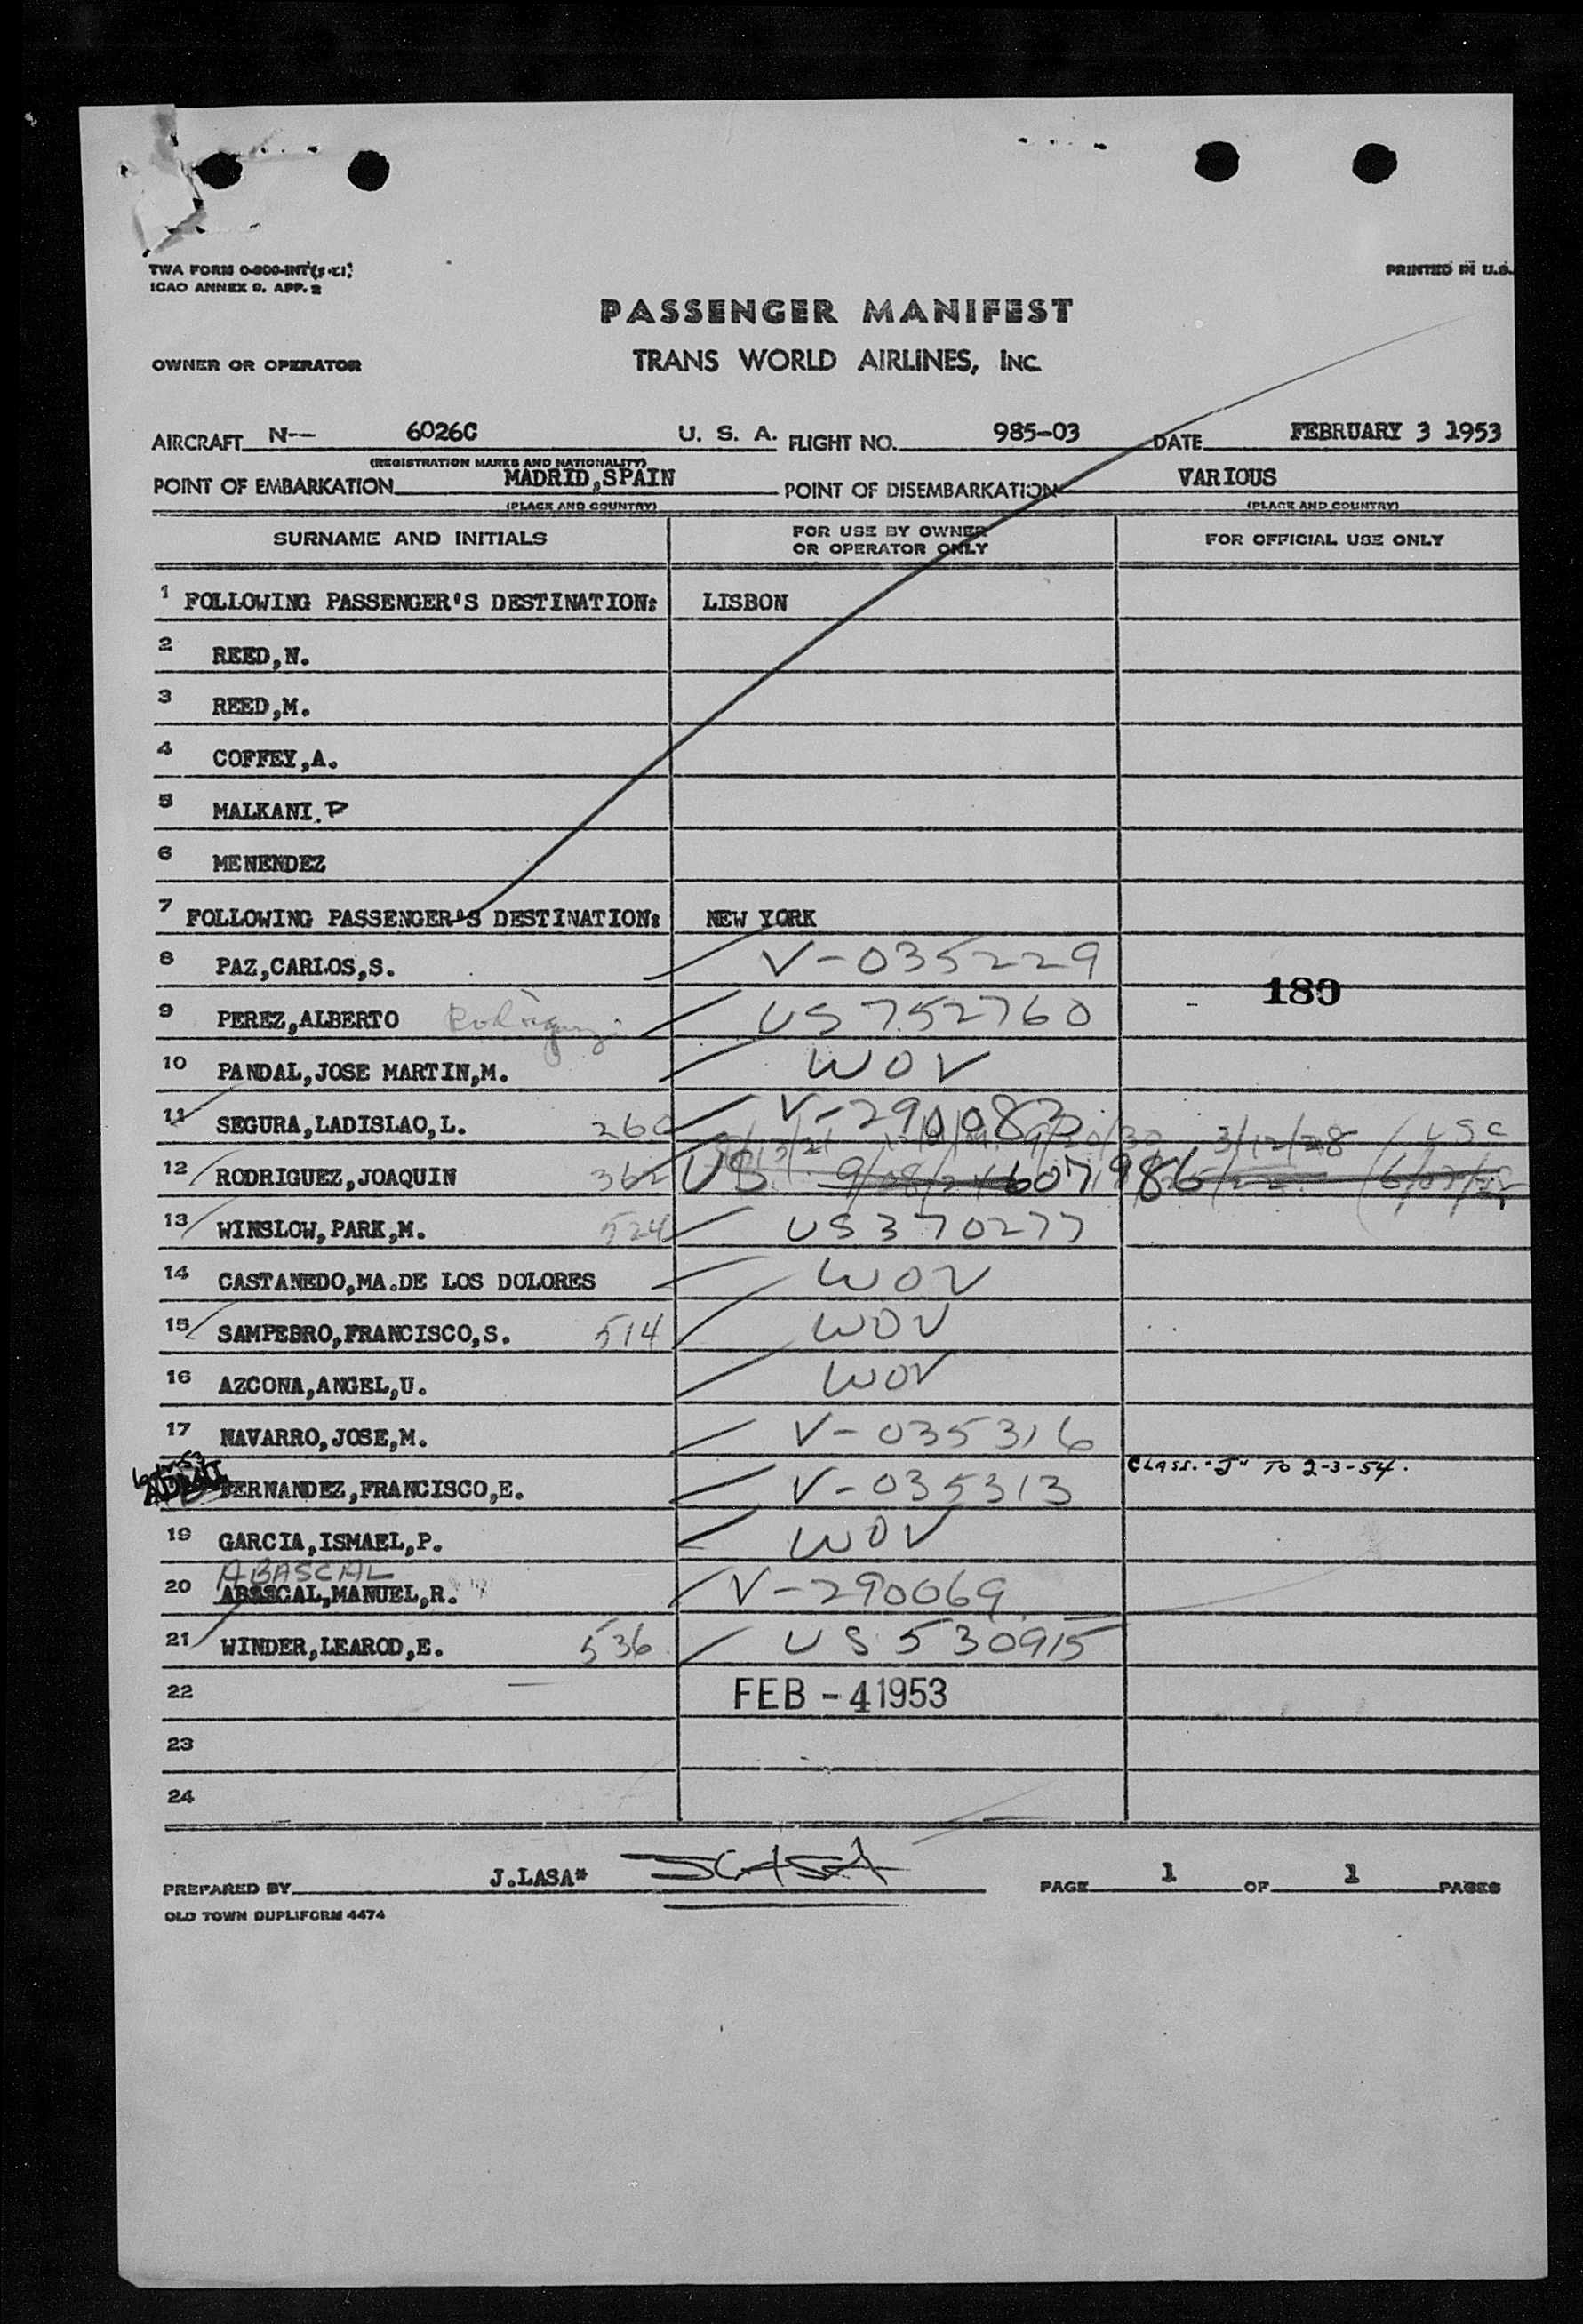 TWA FORM 0-800-INT
ICAO ANNEX 9. APP. 2
PRINTED IN U.S.
PASSENGER MANIFEST
OWNER OR OPERATOR TRANS WORLD AIRLINES, INC
AIRCRAFT N-- 6026C U. S. A. FLIGHT NO. 985-03 DATE FEBRUARY 3 1953
(REGISTRATION MARKS AND NATIONALITY)
POINT OF EMBARKATION MADRID,SPAIN POINT OF DISEMBARKATION VARIOUS
(PLACE AND COUNTRY) (PLACE AND COUNTRY)
SURNAME AND INITIALS FOR USE BY OWNER OR OPERATOR ONLY FOR OFFICIAL USE ONLY
1 FOLLOWING PASSENGER'S DESTINATION: LISBON
2 REED,N.
3 REED,M.
4 COFFEY,A.
5 MALKANI.P
6 MENENDEZ
7 FOLLOWING PASSENGER'S DESTINATION: NEW YORK
8 PAZ,CARLOS,S. V-035229
180
9 PEREZ,ALBERTO Rodriguez US 752760
10 PANDAL,JOSE MARTIN,M. WOV
11 SEGURA,LADISLAO,L. 260 V-290083
3/12/28
12 RODRIGUEZ,JOAQUIN 362 US 607986
13 WINSLOW,PARK,M. 524 US 370277
14 CASTANEDO,MA.DE LOS DOLORES WOV
15 SAMPEDRO,FRANCISCO,S. 514 WOV
16 AZCONA,ANGEL,U. WOV
17 NAVARRO,JOSE,M. V-035316
FERNANDEZ,FRANCISCO,E. V-035313 CLASS. "J" TO 2-3-54.
19 GARCIA,ISMAEL,P. WOV
ABASCAL
20 ABASCAL,MANUEL,R. V-290069
21 WINDER,LEAROD,E. 536 US 530915
22 FEB -4 1953
23
24
PREPARED BY J.LASA* PAGE 1 OF 1 PAGES
OLD TOWN DUPLIFORM 4474